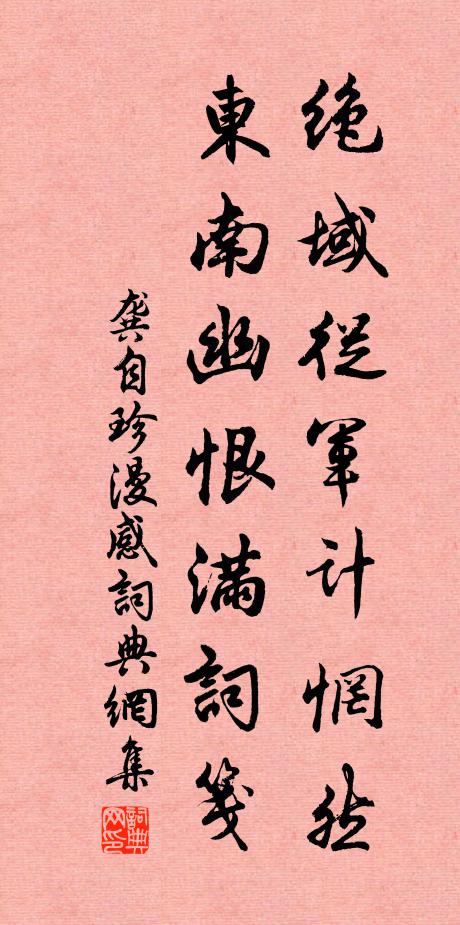 绝域從軍计惘然
東南幽恨滿詞箋
龔自珍漫感詞典網集
詞典网印